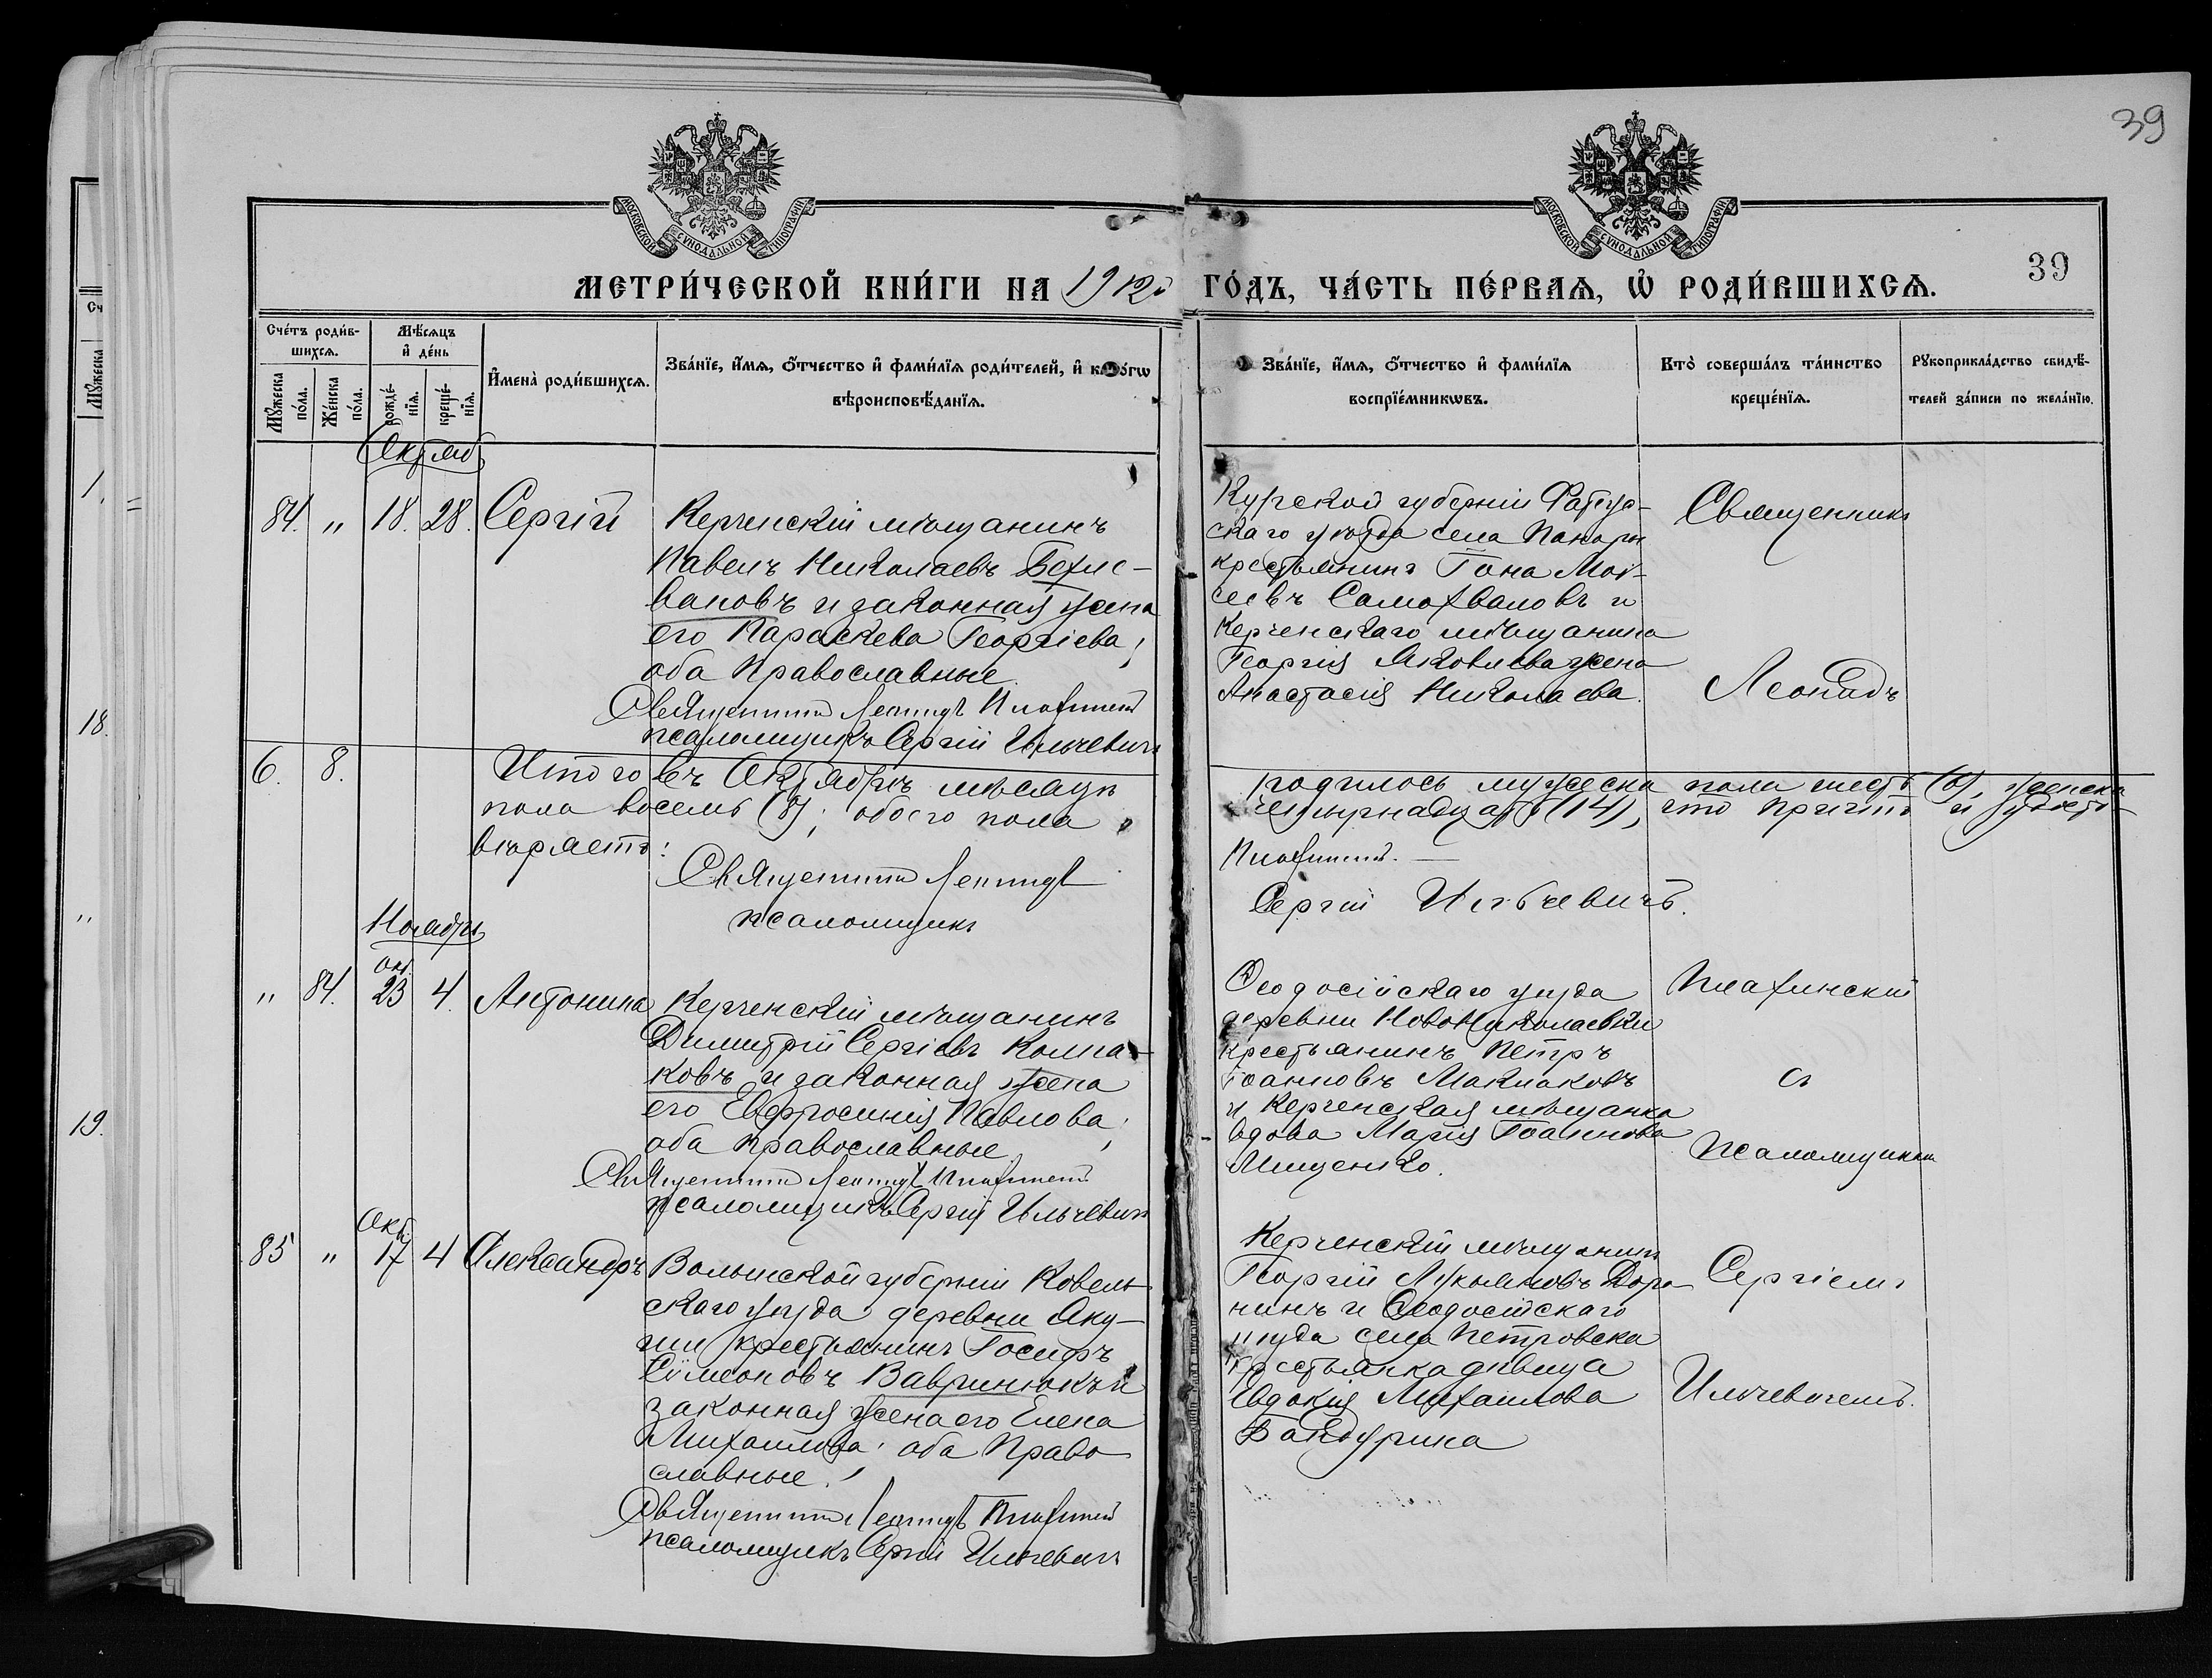 39
МОСКОВСКОЙ СѴНОДАЛЬНОЙ ТИПОГРАФІИ
МОСКОВСКОЙ СѴНОДАЛЬНОЙ ТИПОГРАФІИ
МЕТРИ́ЧЕСКОЙ КНИ́ГИ НА 1912й ГО́ДЪ, ЧА́СТЬ ПЕ́РВАѦ, Ѡ҆ РОДИ́ВШИХСѦ.
39
Сче́тъ роди́в-
шихсѧ.
Мꙋ́жеска по́ла.
Же́нска по́ла.
Мѣ́сѧцъ
и҆ де́нь
рожде́-
нїѧ.
креще́-
нїѧ.
И҆мена̀ роди́вшихсѧ.
Зва́нїе, и҆́мѧ, ѻ҆́тчество и҆ фами́лїѧ роди́телей, и҆ како́гѡ
вѣроисповѣ́данїѧ.
Зва́нїе, и҆́мѧ, ѻ҆́тчество и҆ фами́лїѧ
воспрїе́мникѡвъ.
Кто̀ соверша́лъ та́инство
креще́нїѧ.
Рꙋкоприкла́дство свидѣ́-
телей за́писи по жела́нїю.
Октяб
84. " 18. 28. Сергій
Керченскій мѣщанинъ
Павелъ Николаевъ Бехле-
вановъ и законная жена
его Параскева Георгіева;
оба православные.
Священникъ Леонидъ Плафинскій
псаломщикъ Сергій Ильчевичъ
Курской губерніи Фатеж-
скаго уѣзда села
крестьянинъ Іона Мои-
сеевъ Самохваловъ и
Керченскаго мѣщанина
Георгія Яковлева жена
Анастасія Николаева.
Священникъ
Леонидъ
6. 8. Итого въ Октябрѣ мѣсяцѣ родилось мужеска пола шесть (6), женска
пола восемь (8); обоего пола четырнадцать (14), что причтъ и удосто-
вѣряетъ:
Священникъ Леонидъ Плафинскій. —
псаломщикъ Сергій Ильчевичъ.
Ноябрь
Окт.
" 84. 23 4. Антонина
Керченскій мѣщанинъ
Димитрій Сергіевъ Колпа-
ковъ и законная жена
его Евфросинія Павлова;
оба православные.
Священникъ Леонидъ Плафинскій
псаломщикъ Сергій Ильчевичъ
Ѳеодосійскаго уѣзда
деревни НовоНиколаевки
крестьянинъ Петръ
Іоанновъ Маклаковъ
и Керченская мѣщанка
вдова Марія Іоаннова
Мищенко.
Плафинскій
съ
псаломщикомъ
Окт.
85 " 17 4 Александръ
Волынской губерніи Ковель-
скаго уѣзда деревни Оку-
нин крестьянинъ Іосифъ
Сѵмеоновъ Вавринюкъ и
законная жена его Елена
Михаилова; оба Право
славные.
Священникъ Леонидъ Плафинскій
псаломщикъ Сергій Ильчевичъ
Керченскій мѣщанинъ
Георгій Лукьяновъ Доро-
нинъ и Ѳеодосійскаго
уѣзда села Петровска
крестьянка дѣвица
Евдокія Михаилова
Бандурина
Сергіемъ
Ильчевичемъ.
18.
19.